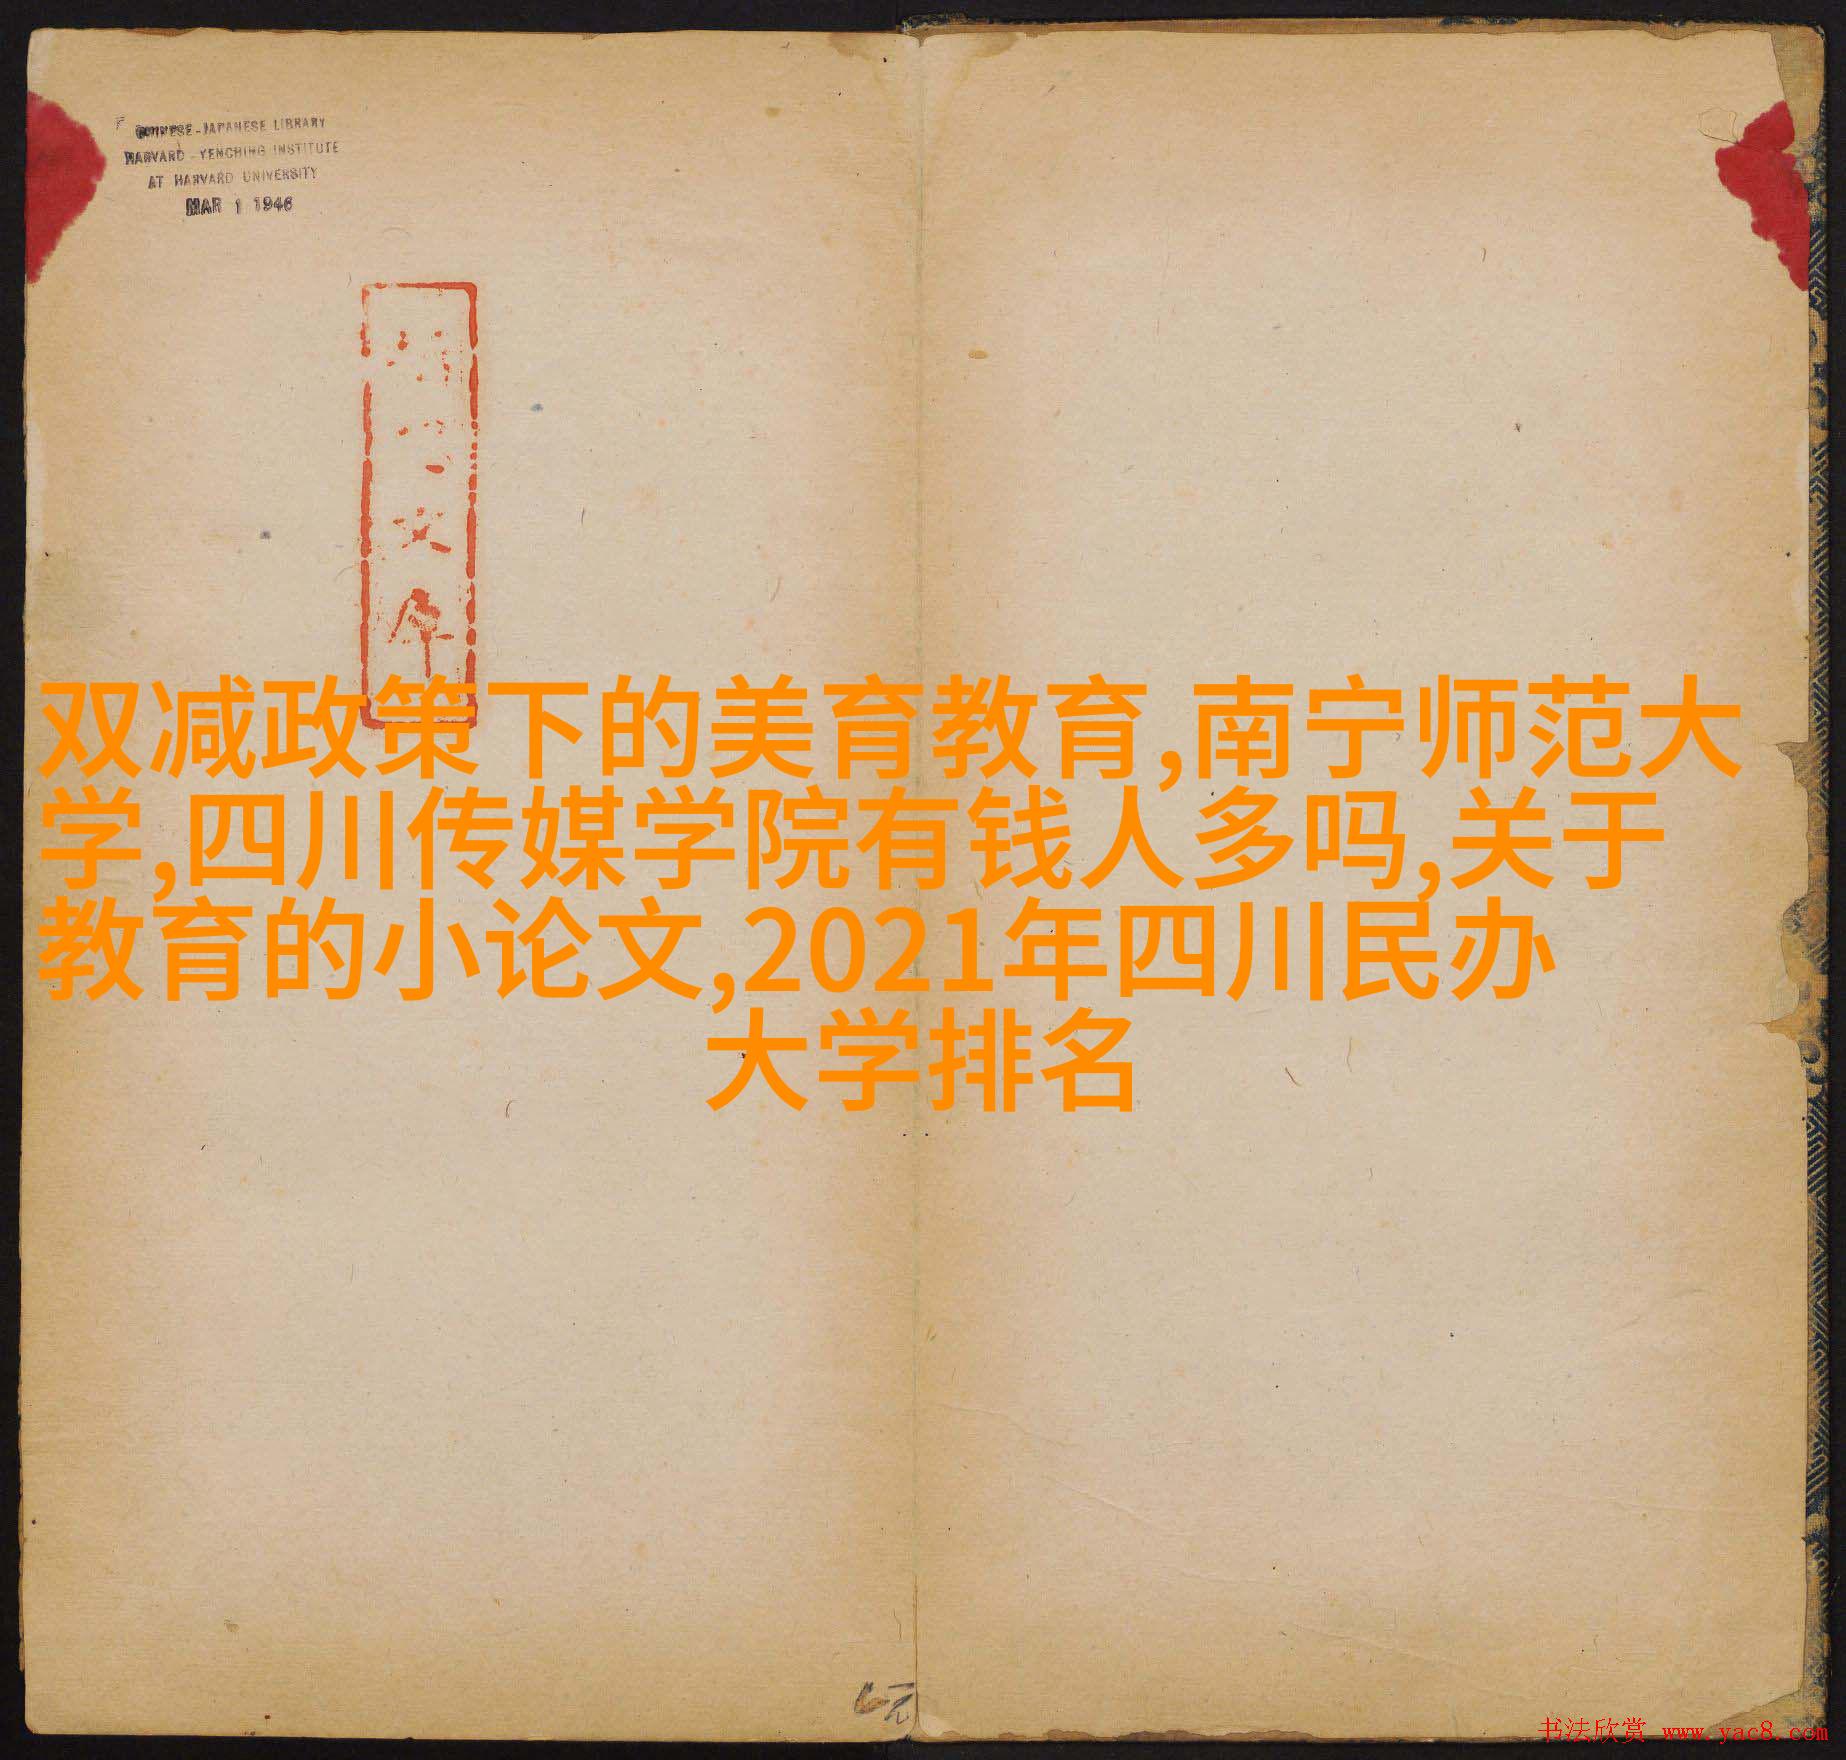 CHINESE-JAPANESE LIBRARY
HARVARD-YENCHING INSTITUTE
AT HARVARD UNIVERSITY
MAR 1 1946
双减政策下的美育教育,南宁师范大
学,四川传媒学院有钱人多吗,关于
教育的小论文,2021年四川民办
大学排名
书法欣赏 www.yac8.com